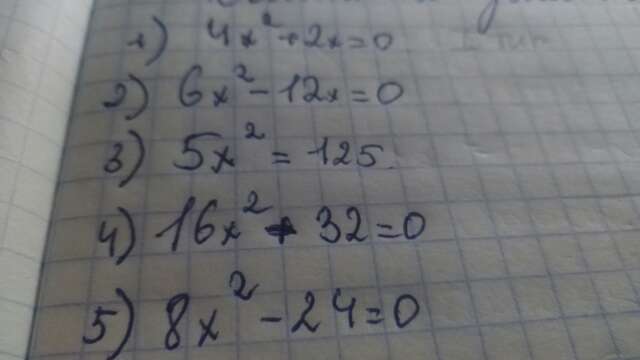 1) 4x² + 2x = 0
2) 6x² - 12x = 0
3) 5x² = 125.
4) 16x² + 32 = 0
5) 8x² - 24 = 0